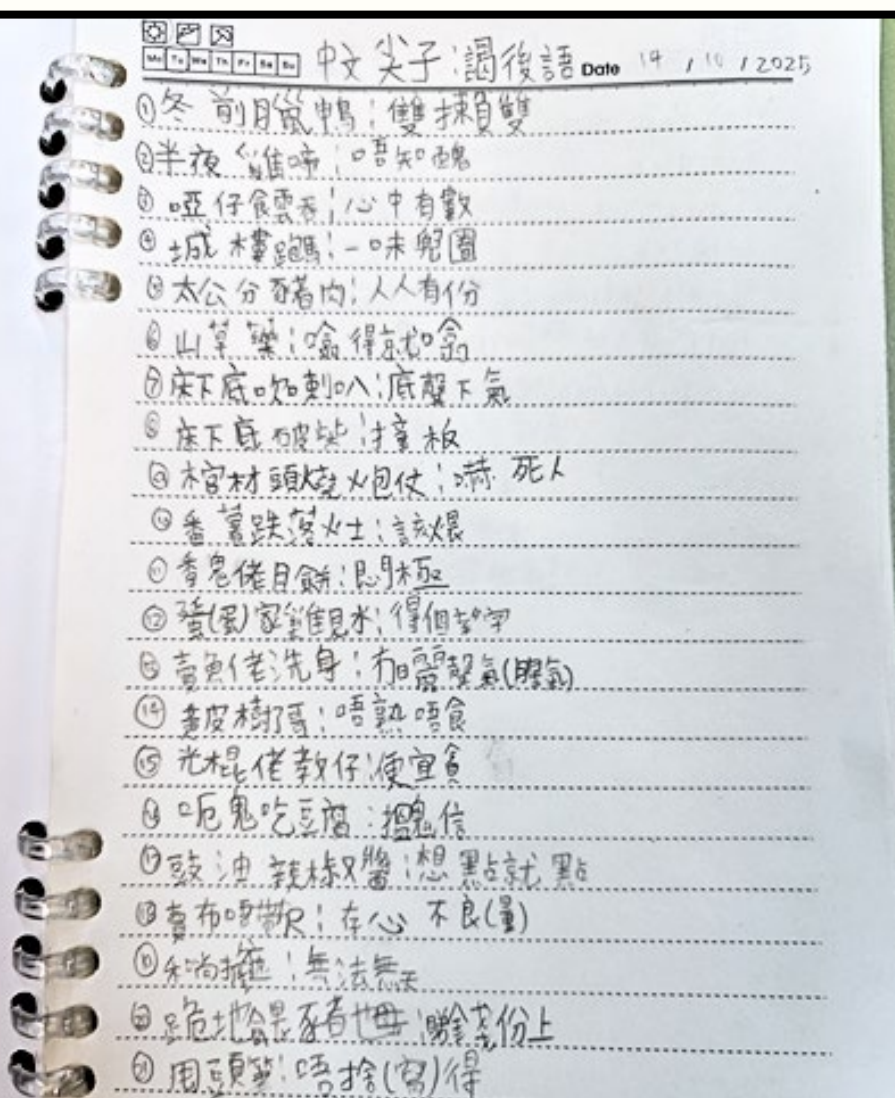 Mo Tu We Th Fr Sa Su 中文尖子:謁後語 Date 14 / 10 / 2025
①冬前腊鴨:雙拺雙
②半夜雞啼:唔知醜
③啞仔食雲吞:心中有數
④城樓跑馬:一味兜圈
⑤太公分豬肉:人人有份
⑥山草藥:噏得就噏
⑦床下底吹喇叭:底聲下氣
⑧床下底破柴:撞板
⑨棺材頭燒火炮仗:嚇死人
⑩番薯跌落火士:該煨
⑪香鬼佬月餅:悶極
⑫蜑(蛋)家雞見水:得個望字
⑬賣魚佬洗身:冇晒聲氣(腥氣)
⑭黃皮樹哥:唔熟唔食
⑮光棍佬教仔:便宜貪
⑯呃鬼吃豆腐:搵鬼信
⑰豉油辣椒醬:想點就點
⑱賣布唔帶尺:存心不良(量)
⑲和尚擔遮:無法無天
⑳跪地餼豬乸:睇錢份上
㉑甩頭筆:唔捨(寫)得